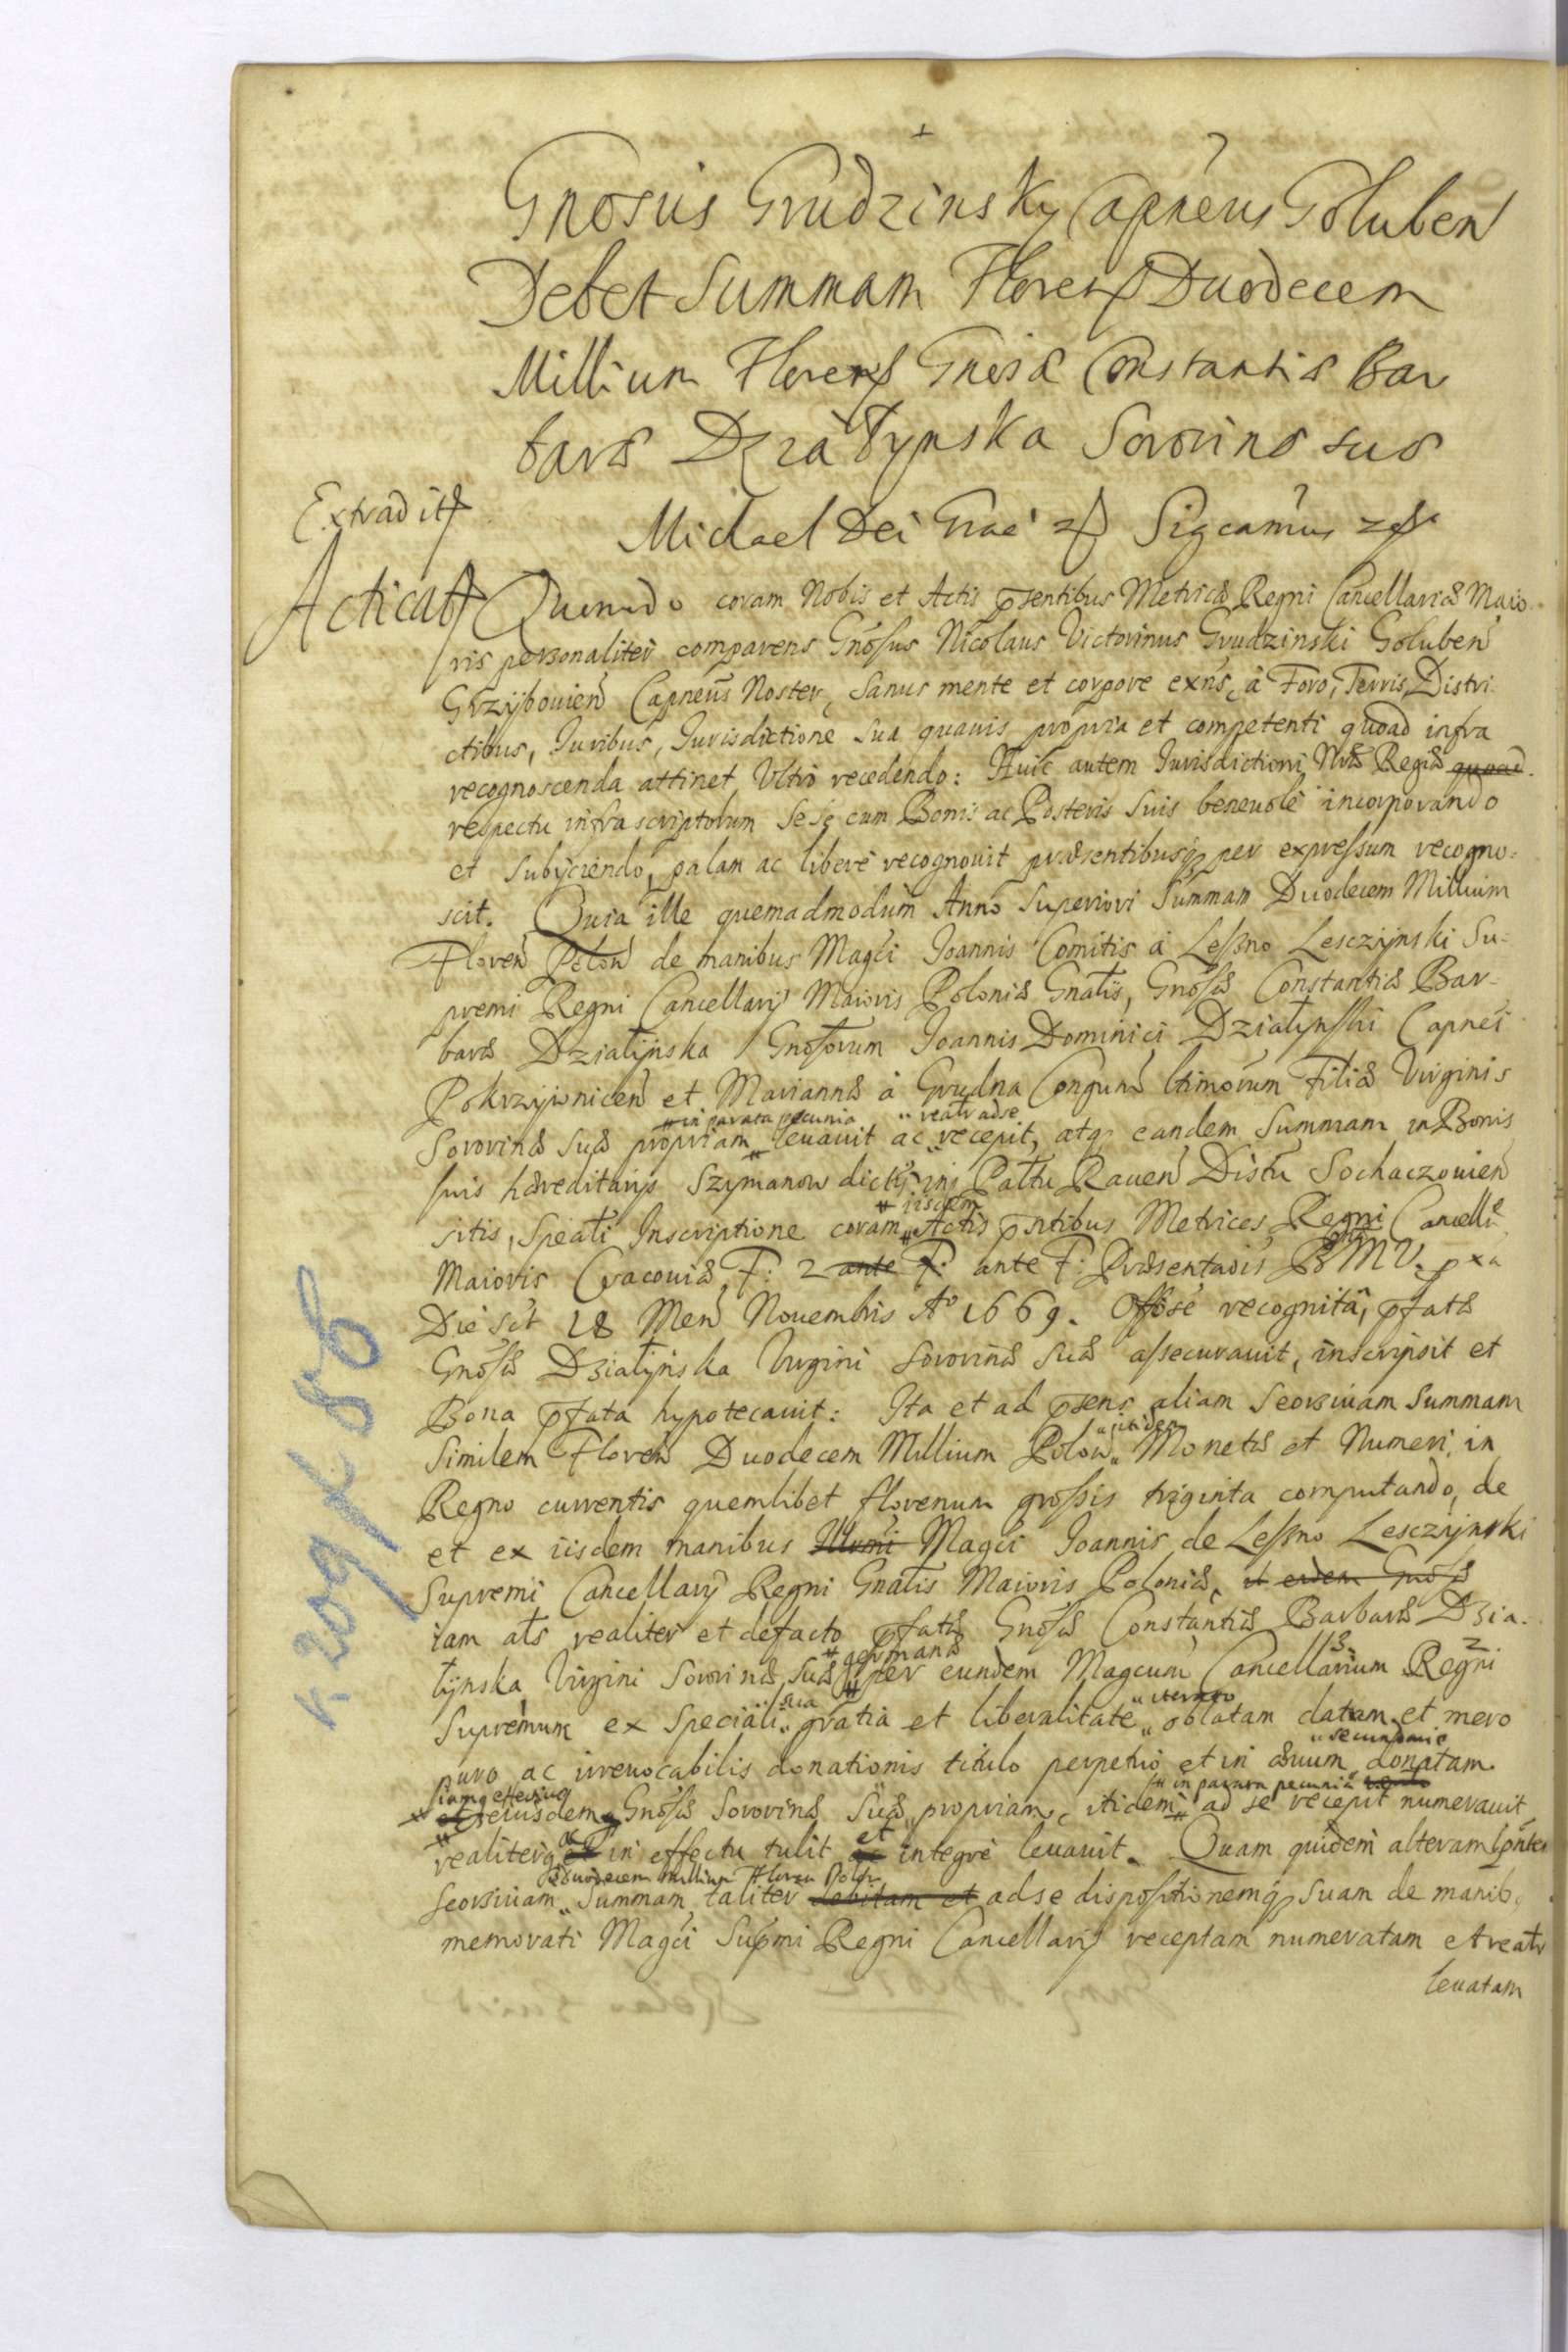 Gnosus Grudzinsky Capneus Goluben
Debet Summam Floren Duodecem
Millium Floren Gnosæ Constantiæ Bar
baræ Dziatynska Sororinæ suæ
Extradit
Michael Dei Grae Sigcamus
Acticat
Quomodo coram Nobis et Actis pñsentibus Metricæ Regni Cancellariæ Maio
ris personaliter comparens Gnosus Nicolaus Victorinus Grudzinski Goluben
Grzybouien Capneus Noster, Sanus mente et corpore exñs, à Foro, Terris, Distri
ctibus, Iuribus, Iurisdictione Sua quauis propria et competenti quoad infra
recognoscenda attinet Ultro recedendo: Huic autem Iurisdictioni Nræ Regiæ quoad
respectu infra scriptorum Sese cum Bonis ac Posteris Suis beneuole incorporando
et Subÿciendo, palam ac liberè recognouit præsentibusq per expressum recogno=
scit. Quia ille quemadmodum Anno Superiori Summam Duodecem Millium
Floren Polon de manibus Magci Ioannis Comitis à Leszno Lesczÿnski Su=
premi Regni Cancellarÿ Maioris Poloniæ Gnalis, Gnosæ Constantiæ Bar-
baræ Dziatÿnska Gnosorum Ioannis Dominici Dziatÿnski Capnei
Pokrzÿwnicen et Mariannæ à Grudna Congum ltimorum Filiæ Virginis
in parata pecunia realr adse
Sororinæ Suæ propriam leuauit ac recepit, atq eandem Summam in Bonis
suis hæreditarÿs Szymanow dictis in Pallu Rauen Distu Sochaczouien
iisdem
sitis, Speali Inscriptione coram Actis pntibus Metrices Regni Cancellæ
Maioris Cracouiæ F: 2 ante F. ante F: Præsentaõis B MV. pxa
Die sct 18 Men Nouembris Ao 1669. Offose recognita, pfatæ
Gnosæ Dziatÿnska Virgini Sororinæ Suæ assecurauit, inscripsit et
Bona pfata hypotecauit: Ita et ad pñsens aliam Seorsiuam Summam
itidem
Similem Floren Duodecem Millium Polon Monetæ et Numeri in
Regno currentis quemlibet florenum grossis triginta computando, de
et ex iisdem manibus Illumi Magci Ioannis de Leszno Lesczÿnski
Supremi Cancellarÿ Regni Gnalis Maioris Poloniæ, et eidem Gnosæ
iam als realiter et defacto pfatæ Gnosæ Constantiæ Barbaræ Dzia-
germanæ 3. 2.
tÿnska Virgini Sororinæ Suæ per eundem Magcum Cancellarium Regni
sua iterato
Supremum ex Speciali gratia et liberalitate oblatam datam et mero
secundario
puro ac irreuocabilis donationis titulo perpetuo et in æuum donatam
iamq effectiue in parata pecunia
et eiusdem Gnosæ Sororinæ Suæ propriam, itidem ad se recepit numerauit
ac et
realiterq et in effectu tulit ac integrè leuauit. Quam quidem alteram
Duodecem millium Floren Polon
seorsiuam Summam taliter debitam et adse dispositionemq Suam de manib
memorati Magci Supmi Regni Cancellarÿ receptam numeratam et realr
leuatam